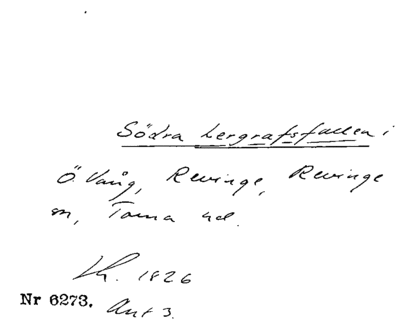 Södra Lergrafsfallen i
Ö. Vång, Revinge, Revinge
sn, Torna hd.
Lh. 1826
Nr 6273. Ant 3.